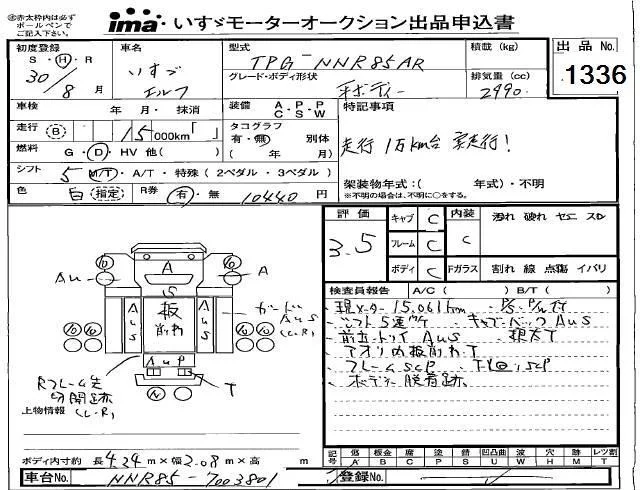 赤太枠内は必ず
ボールペンで
ご記入下さい。
ima・いすゞモーターオークション出品申込書
初度登録 車名 型式 積載 (kg) 出品 No.
S・H・R いすゞ TPG-NNR85AR
30/8 月 エルフ グレード・ボディ形状 平ボディー 排気量 (cc) 2990 1336
車検 年・月・抹消 装備 A・P・P C・S・W 特記事項
走行 B 15 000km「 」 タコグラフ 有・無 別体
走行1万km台 実走行!
燃料 G・D・HV 他( ) ( 年 月)
シフト 5 M/T・A/T・特殊(2ペダル・3ペダル) 架装物年式:( 年式)・不明
色 白 指定 R券 有・無 10440 円 ※不明の場合は、不明に○をする。
評価 キャブ C 内装 汚れ 破れ ヤニ スレ
3.5 フレーム C C
ボディ C Fガラス 割れ 線 点傷 イバリ
検査員報告 A/C( ) B/T( )
現メーター15,061km
シフト5速M/T ・キャブバックAUS
AUS
アオリ内板削れT
フレームSCP
ボデー脱着跡
A
AU A
S
板
削れ
AUS AUS
ガードAUS
(L・R)
AUP
T
Rフレーム先
切開跡
(L・R)
N N
上物情報
ボディ内寸約 長4.24m×幅2.08m×高 m
記号 低 A 板金 B 腐 C 塗 P 鈑 S 凹凸曲 U 波 W 穴 H 跡 M レツ割 T
車台No. NNR85-7003801 登録No.